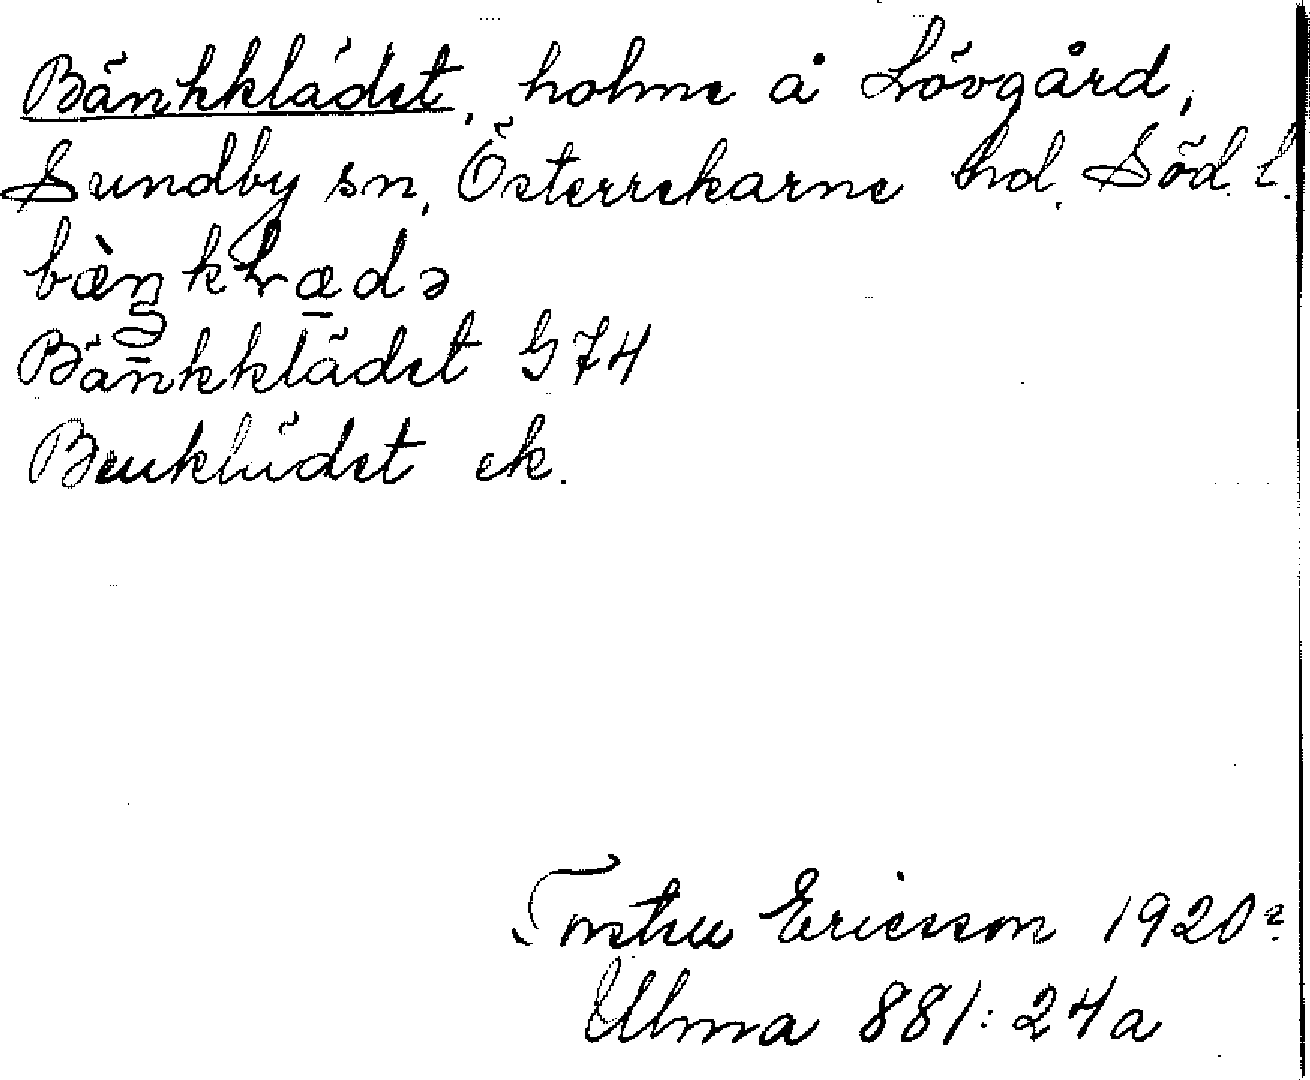 Bänkklädet, holme å Lövgård,
Sundby sn, Österrekarne hd. Söd. l.
bæ̀ŋkklædə
Bänkklädet G74
Benklädet ek.
Torsten Ericsson 1920?
Ulma 881:24a